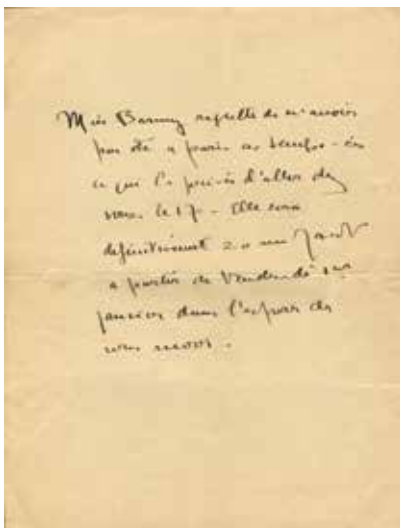 Miss Barney regrette de n'avoir
pas été a paris ces temps-ci
ce que l'a privée d'aller chez
vous le 17 - Elle sera
définitivement 20 rue Jacob
a partir de Vendredi 1er
janvier dans l'espoir de
vous revoir.